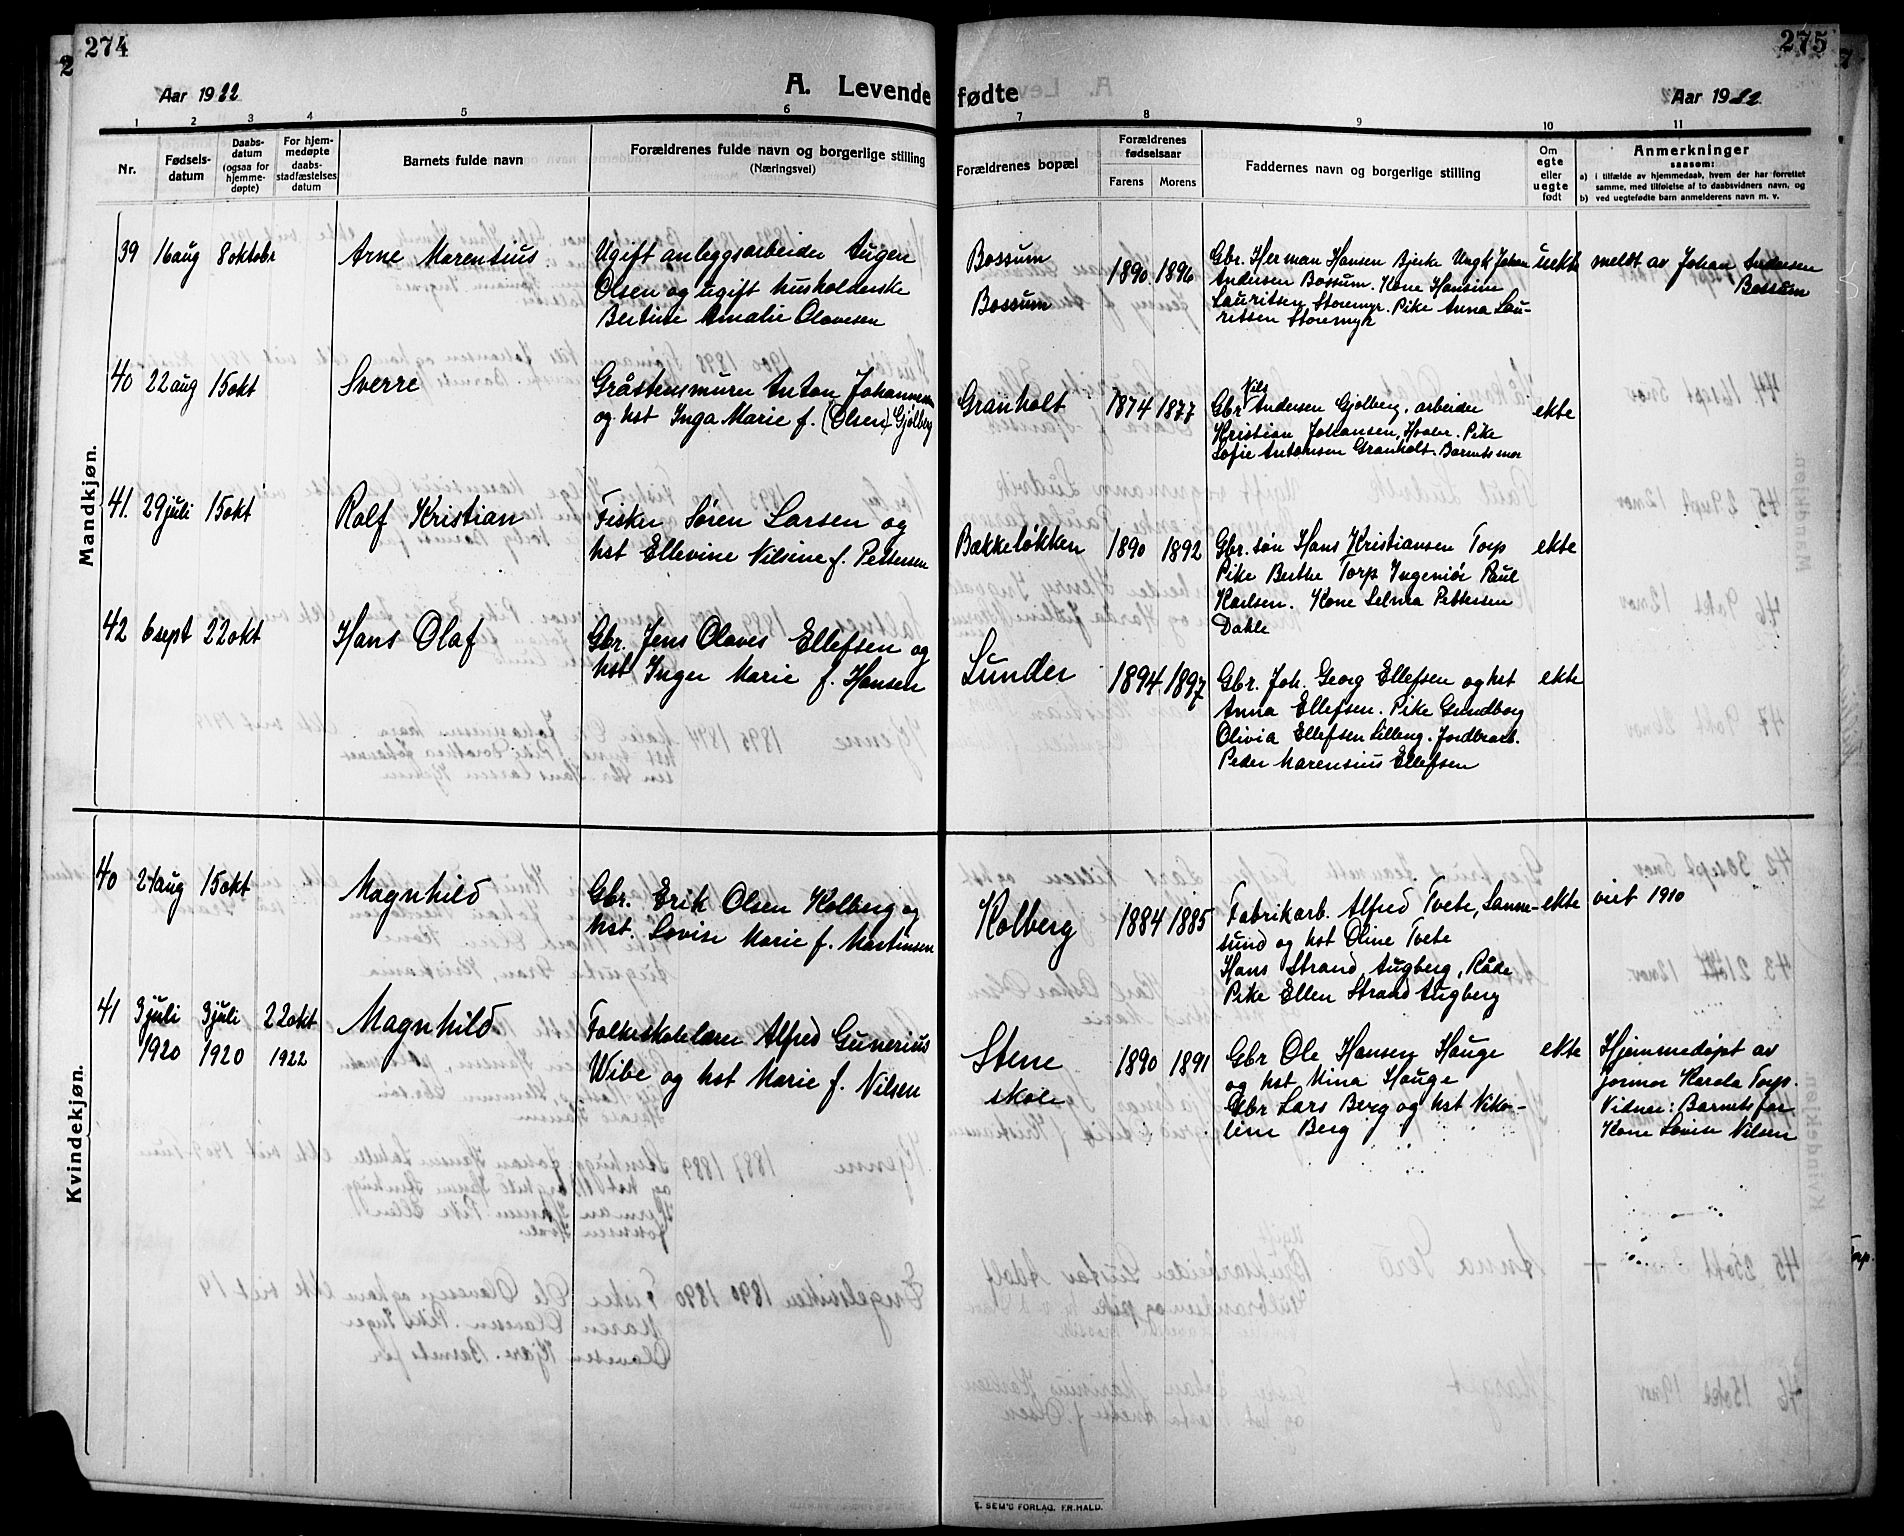 274
275
Aar 1922
A. Levende fødte
Aar 1922.
1 2 3 4 5 6 7 8 9 10 11
Nr.
Fødsels-
datum
Daabs-
datum
(ogsaa for
hjemme-
døpte)
For hjem-
medøpte
daabs-
stadfæstelses
datum
Barnets fulde navn
Forældrenes fulde navn og borgerlige stilling
(Næringsvei)
Forældrenes bopæl
Forældrenes
fødselsaar
Farens Morens
Faddernes navn og borgerlige stilling
Om
egte
eller
uegte
født
Anmerkninger
saasom:
a) i tilfælde av hjemmedaab, hvem der har forrettet
samme, med tilføielse af to daabsvidners navn, og
b) ved uegtefødte barn anmelderens navn m. v.
Mandkjøn.
39 16 aug 8 oktobr Arne Marentius.
Ugift anleggsarbeider Augen
Olsen og ugift husholderske
Bertine Amalie Olavesen
Bossum
Bossum
1890. 1896
Gbr. Herman Hansen Bjerke Ungk. Johan
Andersen Bossum. Kone Hansine
Lauritsen Storemyr. Pike Anna Lau-
ritsen Storemyr
uekte
meldt av Johan Andersen
Bossum
40 22 aug 15 okt Sverre
Gråstensmurer Anton Johannesen
og hst Inga Marie f. (Olsen) Gjølberg
Granholt
1874 1877
Gbr Nils Andersen Gjølberg. arbeider
Kristian Johansen, Hvaler. Pike
Sofie Antonsen Granholt. Barnets mor
ekte
41. 29 juli 15 okt Rolf Kristian
Fisker Søren Larsen og
hst Ellevine Nilsine f. Pettersen
Bækkeløkken
1890 1892
Gbr. søn Hans Kristiansen Torp
Pike Berthe Torp Ingeniør Paul
Karlsen. Kone Selma Pettersen
Dahle
ekte
42 6 sept 22 okt Hans Olaf
Gbr. Jens Olaves Ellefsen og
hst Inger Marie f. Hansen
Lunder
1894. 1897
Gbr. Joh. Georg Ellefsen og hst
Anna Ellefsen. Pike Gundborg
Olivia Ellefsen Lilleng. Jordbrarb.
Peder Marensius Ellefsen
ekte
Kvindekjøn.
40 21 aug 15 okt Magnhild
Gbr. Erik Olsen Kolberg og
hst. Lovise Marie f. Martinsen
Kolberg
1884 1885
Fabrikarb. Alfred Tvete, Sanne-
sund og hst Oline Tvete
Hans Strand, Augberg, Råde
Pike Ellen Strand Augberg
ekte
viet 1910
41 3 juli 1920 3 juli 1920 22 okt 1922 Magnhild
Folkeskolelærer Alfred Gunerius
Wibe og hst Marie f. Nilsen
Stene
skole
1890 1891
Gbr Ole Hansen Hauge
og hst Mina Hauge
Gbr Lars Berg og hst Niko-
line Berg
ekte
Hjemmedøpt av
jormor Karola Torp.
Vidner: Barnets far
Kone Lovise Nilsen
E. SEM'S FORLAG, FR.HALD.